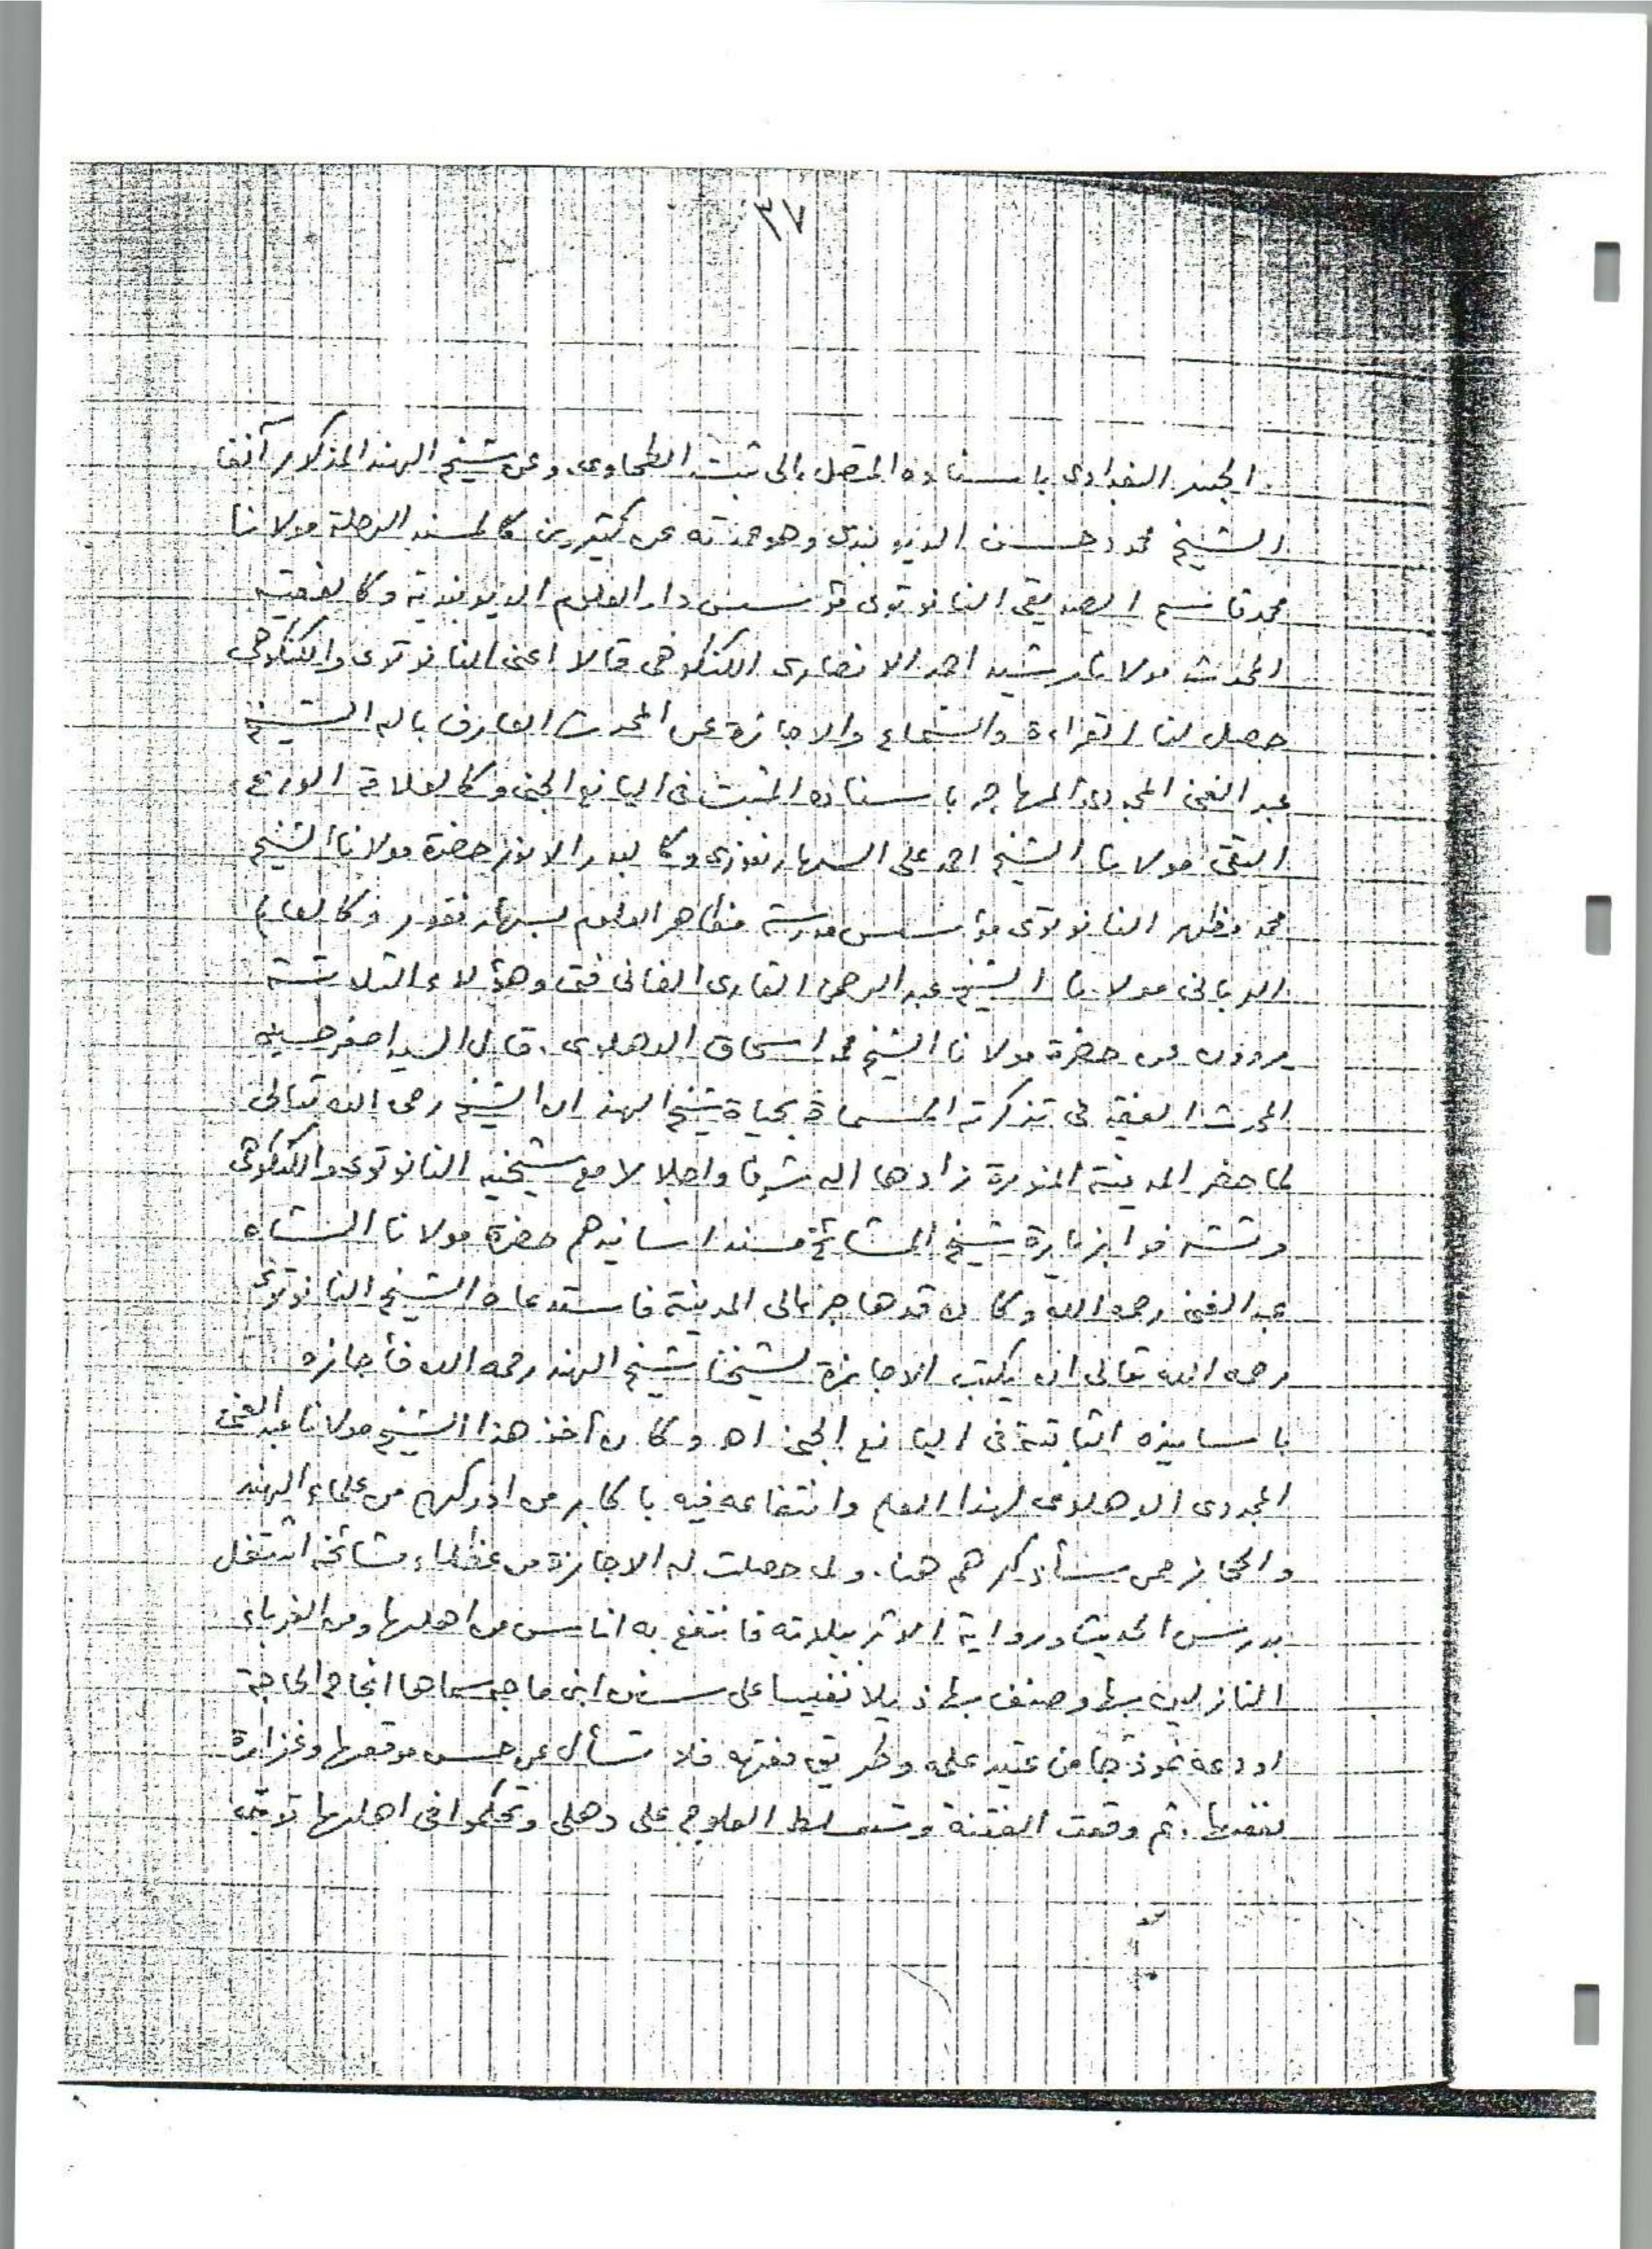 ٣٧
الجنيد البغدادى باسناده المتصل الى ثبت الطحاوى وعن شيخ الهند المذكور آنفا
الشيخ محمود حسن الديوبندى وهو حدثه عن كثيرين كالمسند الرحلة مولانا
محمد قاسم الصديقى النانوتوى مؤسس دار العلوم الديوبندية وكالفقيه
المحدث مولانا رشيد احمد الانصارى الكنكوهى قالا اعنى النانوتوى والكنكوهى
حصل لنا القراءة والسماع والاجازة عن المحدث العارف بالله الشيخ
عبد الغنى المجددى المهاجر باسناده المثبت فى اليانع الجنى وكالعلامة الورع
التقى مولانا الشيخ احمد على السهارنفورى وكالبدر الانور حضرة مولانا الشيخ
محمد مظهر النانوتوى مؤسس مدرسة مظاهر العلوم بسهارنفور وكالعالم
الربانى مولانا الشيخ عبد الرحمن القارى الفانى فتى وهؤلاء الثلاثة
يروون عن حضرة مولانا الشيخ محمد اسحاق الدهلوى. قال السيد اصغر حسين
المحدث الفقيه فى تذكرته المسماة بحياة شيخ الهند ان الشيخ رحمه الله تعالى
لما حضر المدينة المنورة زادها الله شرفا واجلالا مع شيخيه النانوتوى والكنكوهى
وتشرفوا بزيارة شيخ المشائخ مسند اسانيدهم حضرة مولانا الشاه
عبد الغنى رحمه الله وكان قد هاجر الى المدينة فاستدعاه الشيخ النانوتوى
رحمه الله تعالى ان يكتب الاجازة لشيخنا شيخ الهند رحمه الله فأجازه
باسانيده الثابتة فى اليانع الجنى اه وكان أخذ هذا الشيخ مولانا عبد الغنى
المجددى الدهلوى لهذا العلم وانتفاعه فيه باكابر من ادركهم من علماء الهند
والحجاز ممن سأذكرهم هنا. ولما حصلت له الاجازة من عظماء مشائخه اشتغل
بدرس الحديث ورواية الاثر ببلدته فانتفع به اناس من اهلها ومن الغرباء
النازلين بها وصنف بها ذيلا نفيسا على سنن ابن ماجه سماها انجاح الحاجة
اودعه نموذجا من عتيد علمه وطريق فقهه فلا تسأل عن حسن موقعها وغزارة
نفعها. ثم وقعت الفتنة وتسلط العلوج على دهلى وتحكموا فى اهلها